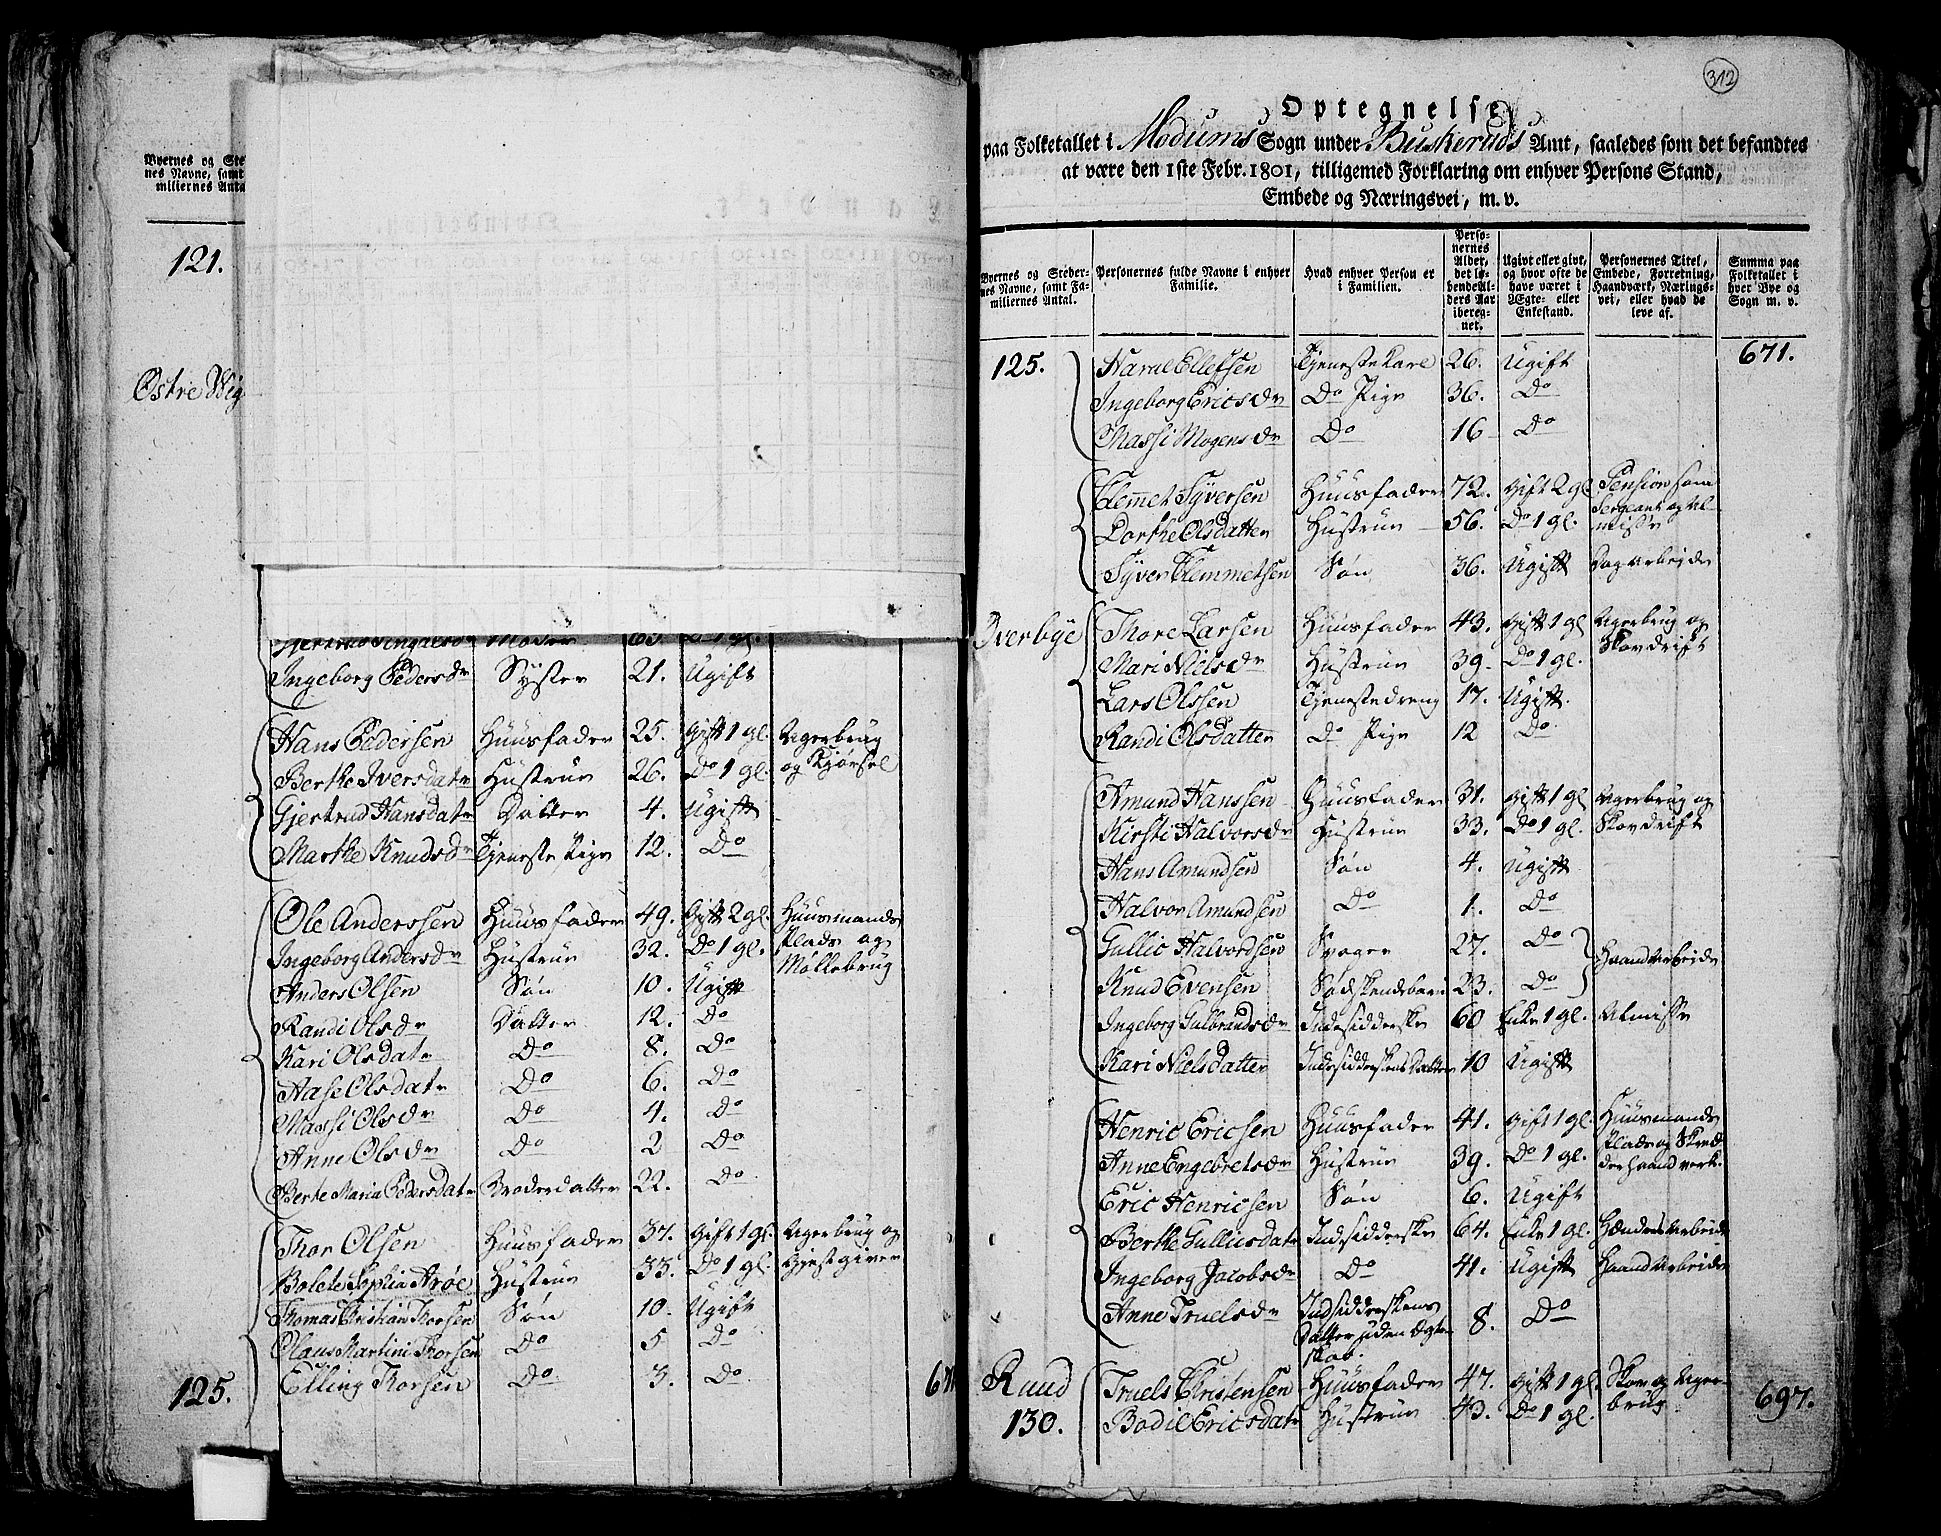 Byernes og Ste
nes Navne, samt
miliernes Anta
121.
Østre Wig
Moder 63.
Ingeborg Pedersdr Syster 21. Ugift
Hans Pedersen Huusfader 25. Gift 1 gl. Agerbrug
Berthe Iversdatr Hustrue 26. Do 1 gl. og Kjørsel
Gjertrud Hansdatr Datter 4. Ugift
Marthe Knudsdr Tjeneste Pige 12. Do
Ole Anderssen Huusfader 49. Gift 2 gl. Huusmands
Ingeborg Andersdr Hustrue 32. Do 1 gl. Plads og
Møllebrug
Anders Olsen Søn 10. Ugift
Randi Olsdr Datter 12. Do
Kari Olsdatr Do 8. Do
Aase Olsdatr Do 6. Do
Massi Olsdr Do 4. Do
Anne Olsdr Do 2 Do
Berte Maria Pedersdatr Broderdatter 22. Do
Thor Olsen Huusfader 37. Gift 1 gl. Agerbrug og
Bolete Sophia Arøe Hustrue 33. Do 1 gl. Gjestgiver
Thomas Christian Thorsen Søn 10. Ugift
Claus Martini Thorsen Do 5 Do
125. Elling Thorsen Do 3. Do
312
Optegnelse
paa Folketallet i Modums Sogn under Buskeruds Amt, saaledes som det befandtes
at være den 1ste Febr. 1801, tilligemed Forklaring om enhver Persons Stand,
Embede og Næringsvei, m. v.
Byernes og Steder-
nes Navne, samt Fa-
miliernes Antal.
Personernes fulde Navne i enhver
Familie.
Hvad enhver Person er
i Familien.
Perso-
nernes
Alder,
det lø-
bende Al-
ders Aar
ibereg-
net.
Ugivt eller givt,
og hvor ofte de
have været i
Ægte- eller
Enkestand.
Personernes Titel,
Embede, Forretning,
Haandværk, Nærings-
vei, eller hvad de
leve af.
Summa paa
Folketallet i
hver Bye og
Sogn m. v.
125. Ellefsen Tjeneste Karl 26. Ugift 671.
Ingeborg Ericsdr Do Pige 36. Do
Massi Mogensdr Do 16 Do
Clemmet Syversen Huusfader 72. Gift 2 gl. Pension som
Dorthe Olsdatter Hustrue 56. Do 1 gl. Sergeant og Al-
misse
Syver Clemmetsen Søn 36. Ugift Dagarbeide
Iverbye Thore Larsen Huusfader 43. Gift 1 gl Agerbrug og
Mari Nielsdr Hustrue 39. Do 1 gl. Skovdrift
Lars Olssen Tjenestedreng 17. Ugift.
Randi Olsdatter Do Pige 12 Do
Amund Hanssen Huusfader 31. Gift 1 gl Agerbrug og
Kirsti Halvorsdr Hustrue 33. Do 1 gl. Skovdrift
Hans Amundsen Søn 4. Ugift
Halvor Amundsen Do 1. Do
Gullic Halvordsen Svoger 27. Do Haandarbeide
Knud Evensen Sødskendebarn 23. Do
Ingeborg Gulbrandsdr Indesidderske 60 Enke 1 gl. Almisse
Kari Nielsdatter Indesidderskens Datter 10 Ugift
Henric Ericsen Huusfader 41. Gift 1 gl. Huusmands
Anne Engebretsdr Hustrue 39. Do 1 gl. Plads og Skræd
derhaandverk.
Eric Henricsen Søn 6. Ugift
Berthe Gulliusdatr Indsidderske 64. Enke 1 gl. Hændersarbeide
Ingeborg Jacobsdr Do 41. Ugift Haandarbeide
Anne Truelsdr Indsidderskens
Datter uden Ægte
skab. 8. Do
Ruud Truels Christensen Huusfader 47. Gift 1 gl. Skov og Ager-
130. Bodil Ericsdatr Hustrue 43. Do 1 gl. brug 697.